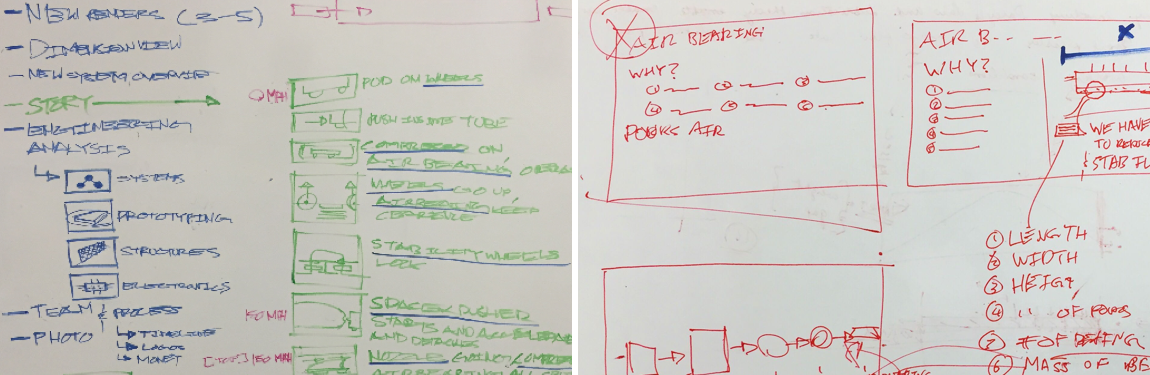 - NEW RENDERS (3-5)
- DIMENSION VIEW
- NEW SYSTEM OVERVIEW
- STORY
- ENGINEERING
ANALYSIS
SYSTEMS
PROTOTYPING
STRUCTURES
ELECTRONICS
- TEAM & PROCESS
- PHOTO
TIMELINE
LOGOS
MONEY
0 MPH
POD ON WHEELS
PUSH INSIDE TUBE
COMPRESSED ON
AIR BEARING
WHEELS GO UP
AIRBEARING KEEP
CLEARANCE
STABILITY WHEELS
LOCK
150 MPH
SPACEX PUSHER
STARTS AND
AND DETACHES
150 MPH
NOZZLE
AIR BEARING
WHY?
①
②
③
④
⑤
⑥
AIR
AIR B-- --
WHY?
①
②
③
④
⑤
⑥
X
WE HAVE
TO
STAB
① LENGTH
② WIDTH
③ HEIGT
④ " OF
⑤ # OF
⑥ MASS OF